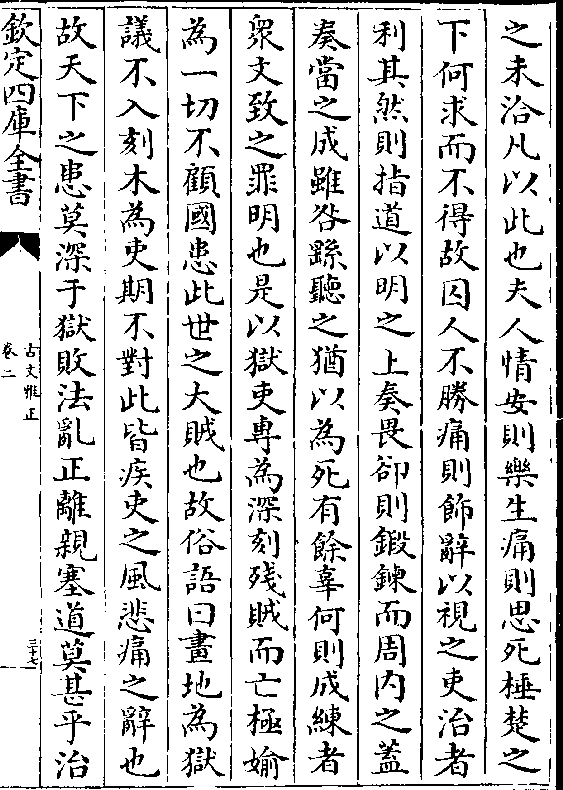 之未洽凡以此也夫人情安則樂生痛則思死棰楚之
下何求而不得故囚人不勝痛則飾辭以視之吏治者
利其然則指道以明之上奏畏卻則鍛鍊而周内之蓋
奏當之成雖咎繇聽之猶以為死有餘辜何則成練者
衆文致之罪明也是以獄吏專為深刻殘賊而亡極媮
為一切不顧國患此世之大賊也故俗語曰畫地為獄
議不入刻木為吏期不對此皆疾吏之風悲痛之辭也
故天下之患莫深于獄敗法亂正離親塞道莫甚乎治
欽定四庫全書
古文雅正
卷二
三十七